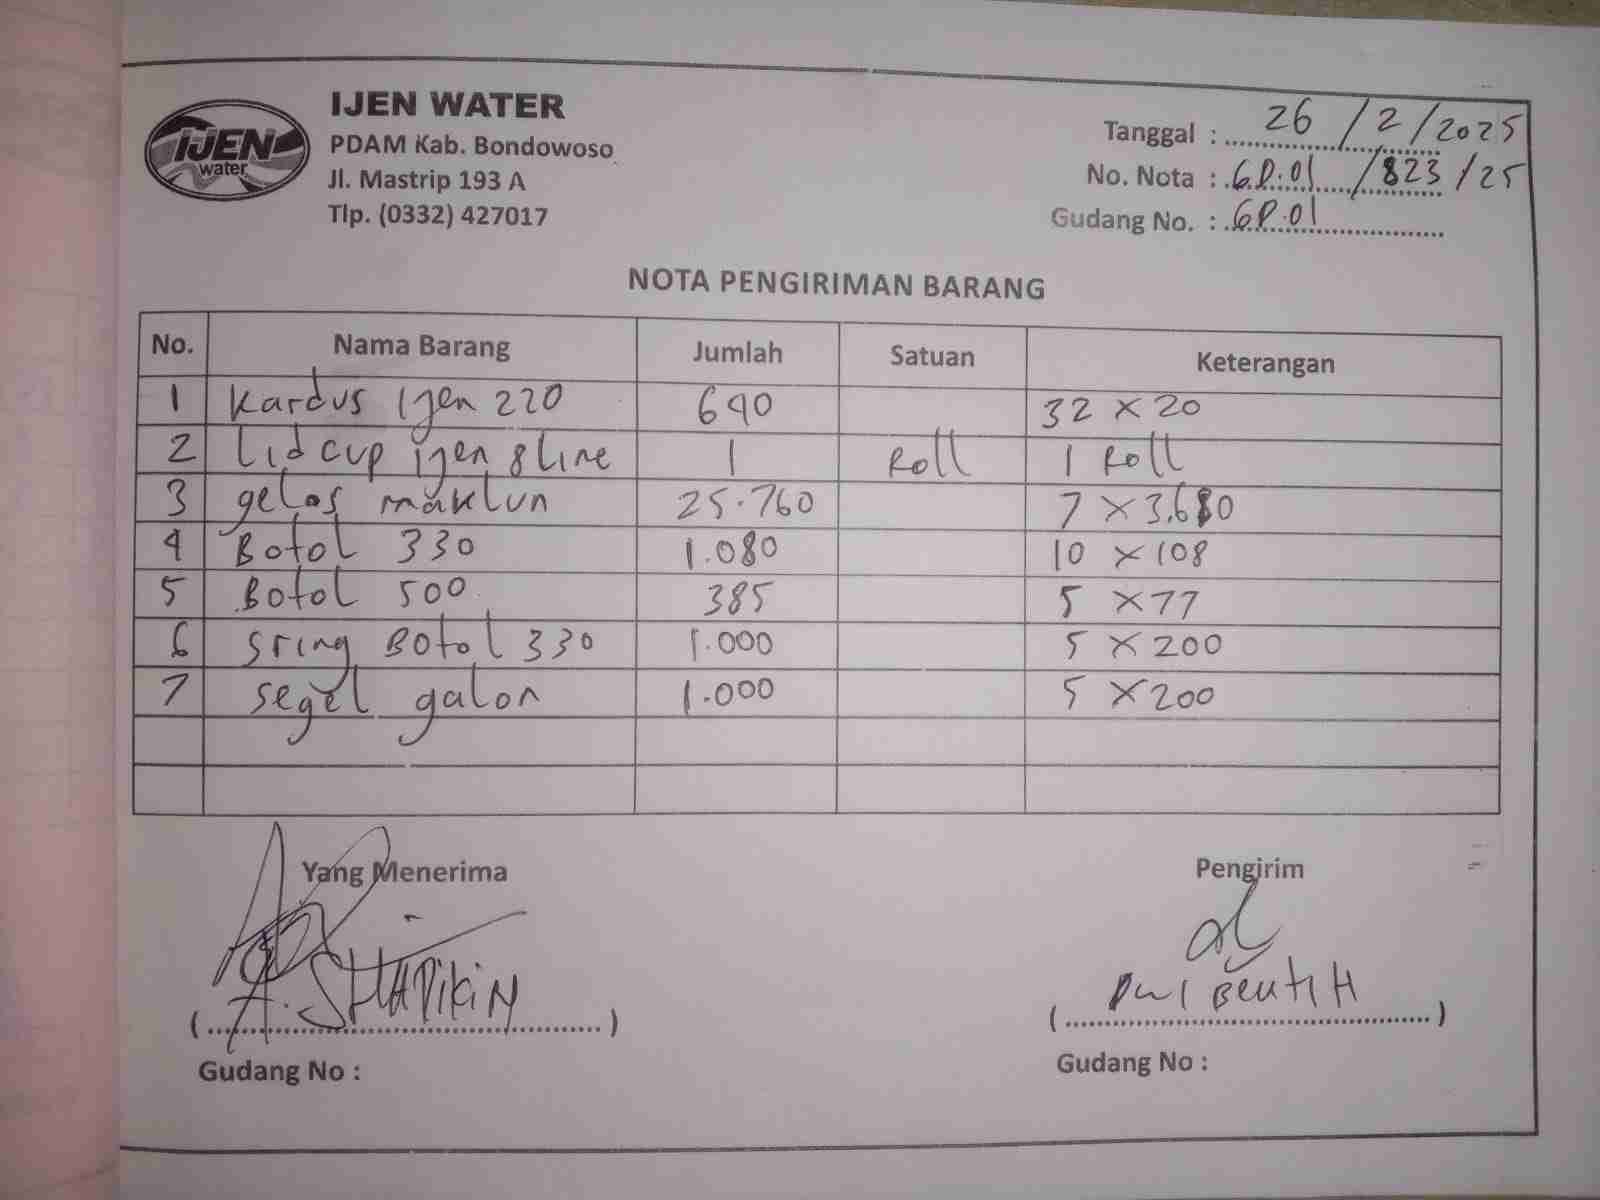 IJEN WATER
IJEN
water
PDAM Kab. Bondowoso
Jl. Mastrip 193 A
Tlp. (0332) 427017
Tanggal : 26 / 2 / 2025
No. Nota : GP.01 / 823 / 25
Gudang No. : GP.01
NOTA PENGIRIMAN BARANG
No. Nama Barang Jumlah Satuan Keterangan
1 Kardus Ijen 220 640 32 x 20
2 Lid cup ijen 8 line 1 Roll 1 Roll
3 gelas maklun 25.760 7 x 3.680
4 Botol 330 1.080 10 x 108
5 Botol 500 385 5 x 77
6 Sring Botol 330 1.000 5 x 200
7 Segel galon 1.000 5 x 200
Yang Menerima Pengirim
Gudang No : Gudang No :